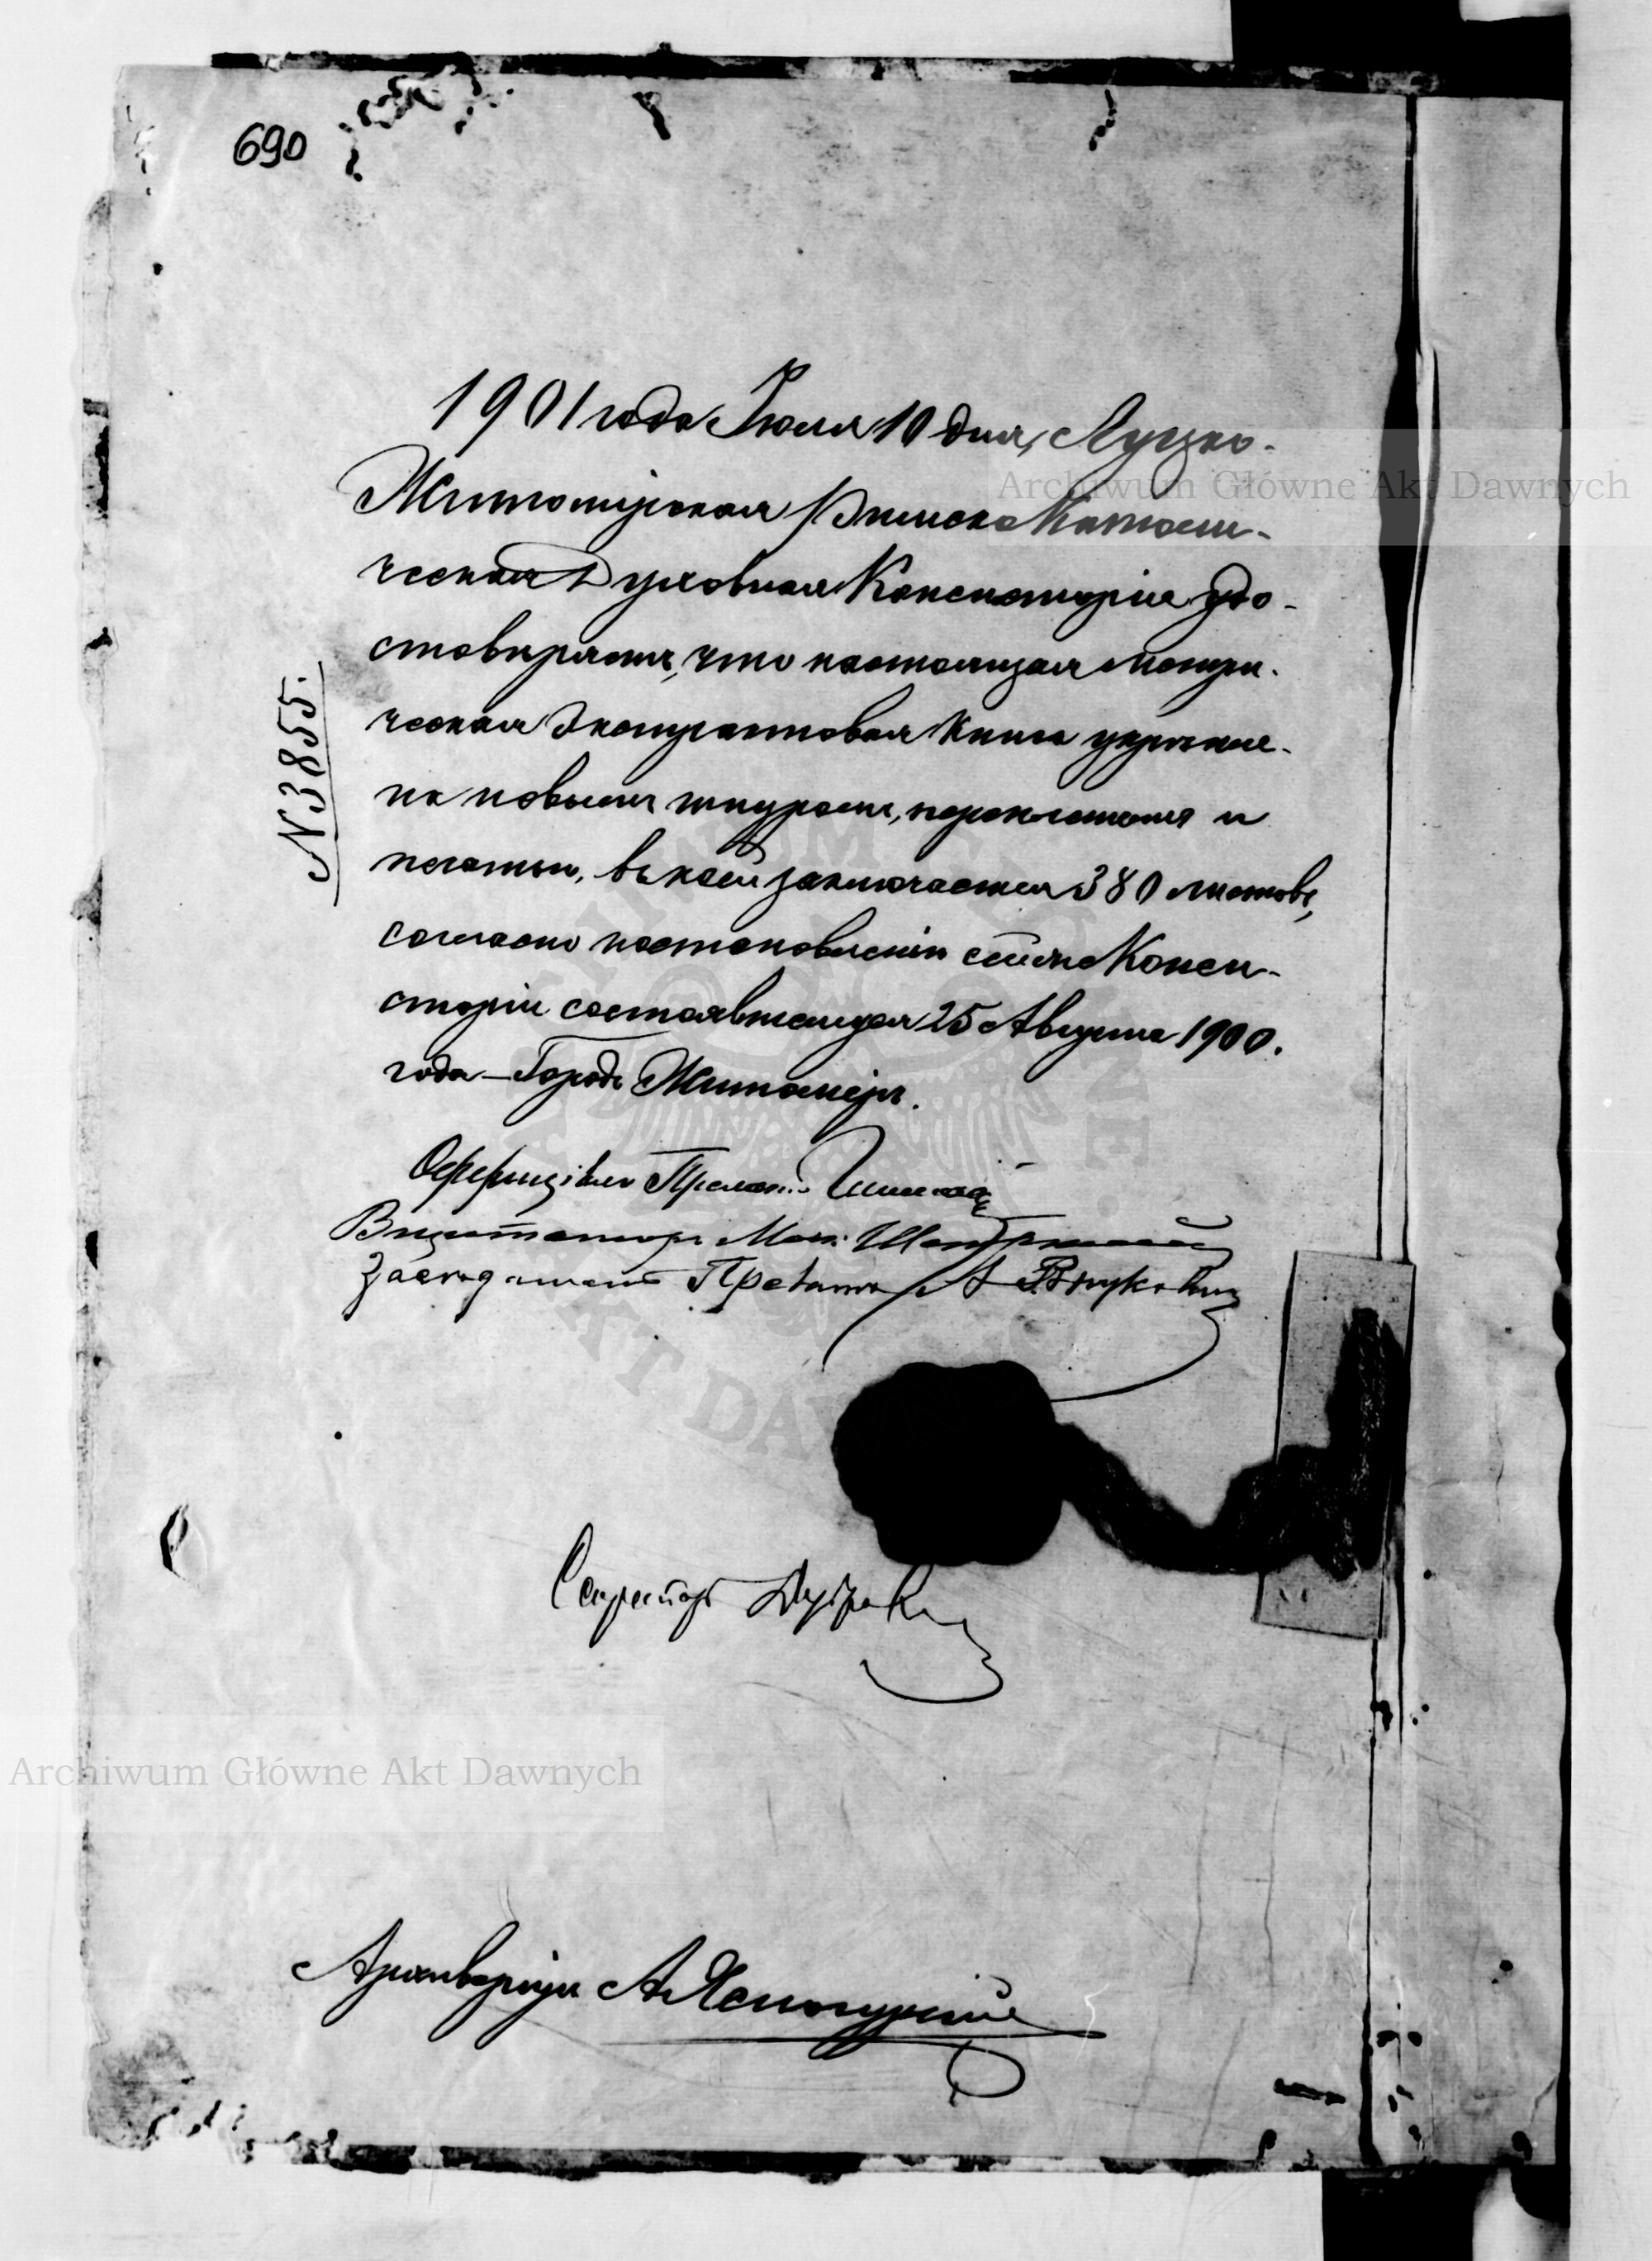 690
1901 года Іюля 10 дня, Луцко-
Житомірская Римско Католи-
ческая Духовная Консисторія удо-
стовѣряетъ, что настоящая метри-
ческая экстрактовая книга укрѣпле-
на новымъ шнуромъ, переплетомъ и
печатью, въ коей заключается 380 листовъ,
согласно постановленію сей же Конси-
сторіи состоявшемуся 25 Августа 1900.
года – Городъ Житоміръ.
N 3855.
Оффиціалъ Прелатъ
Визитаторъ Маг:
Засѣдатель Прелатъ А
Секретарь
Архиваріусъ А
Archiwum Główne Akt Dawnych
Archiwum Główne Akt Dawnych